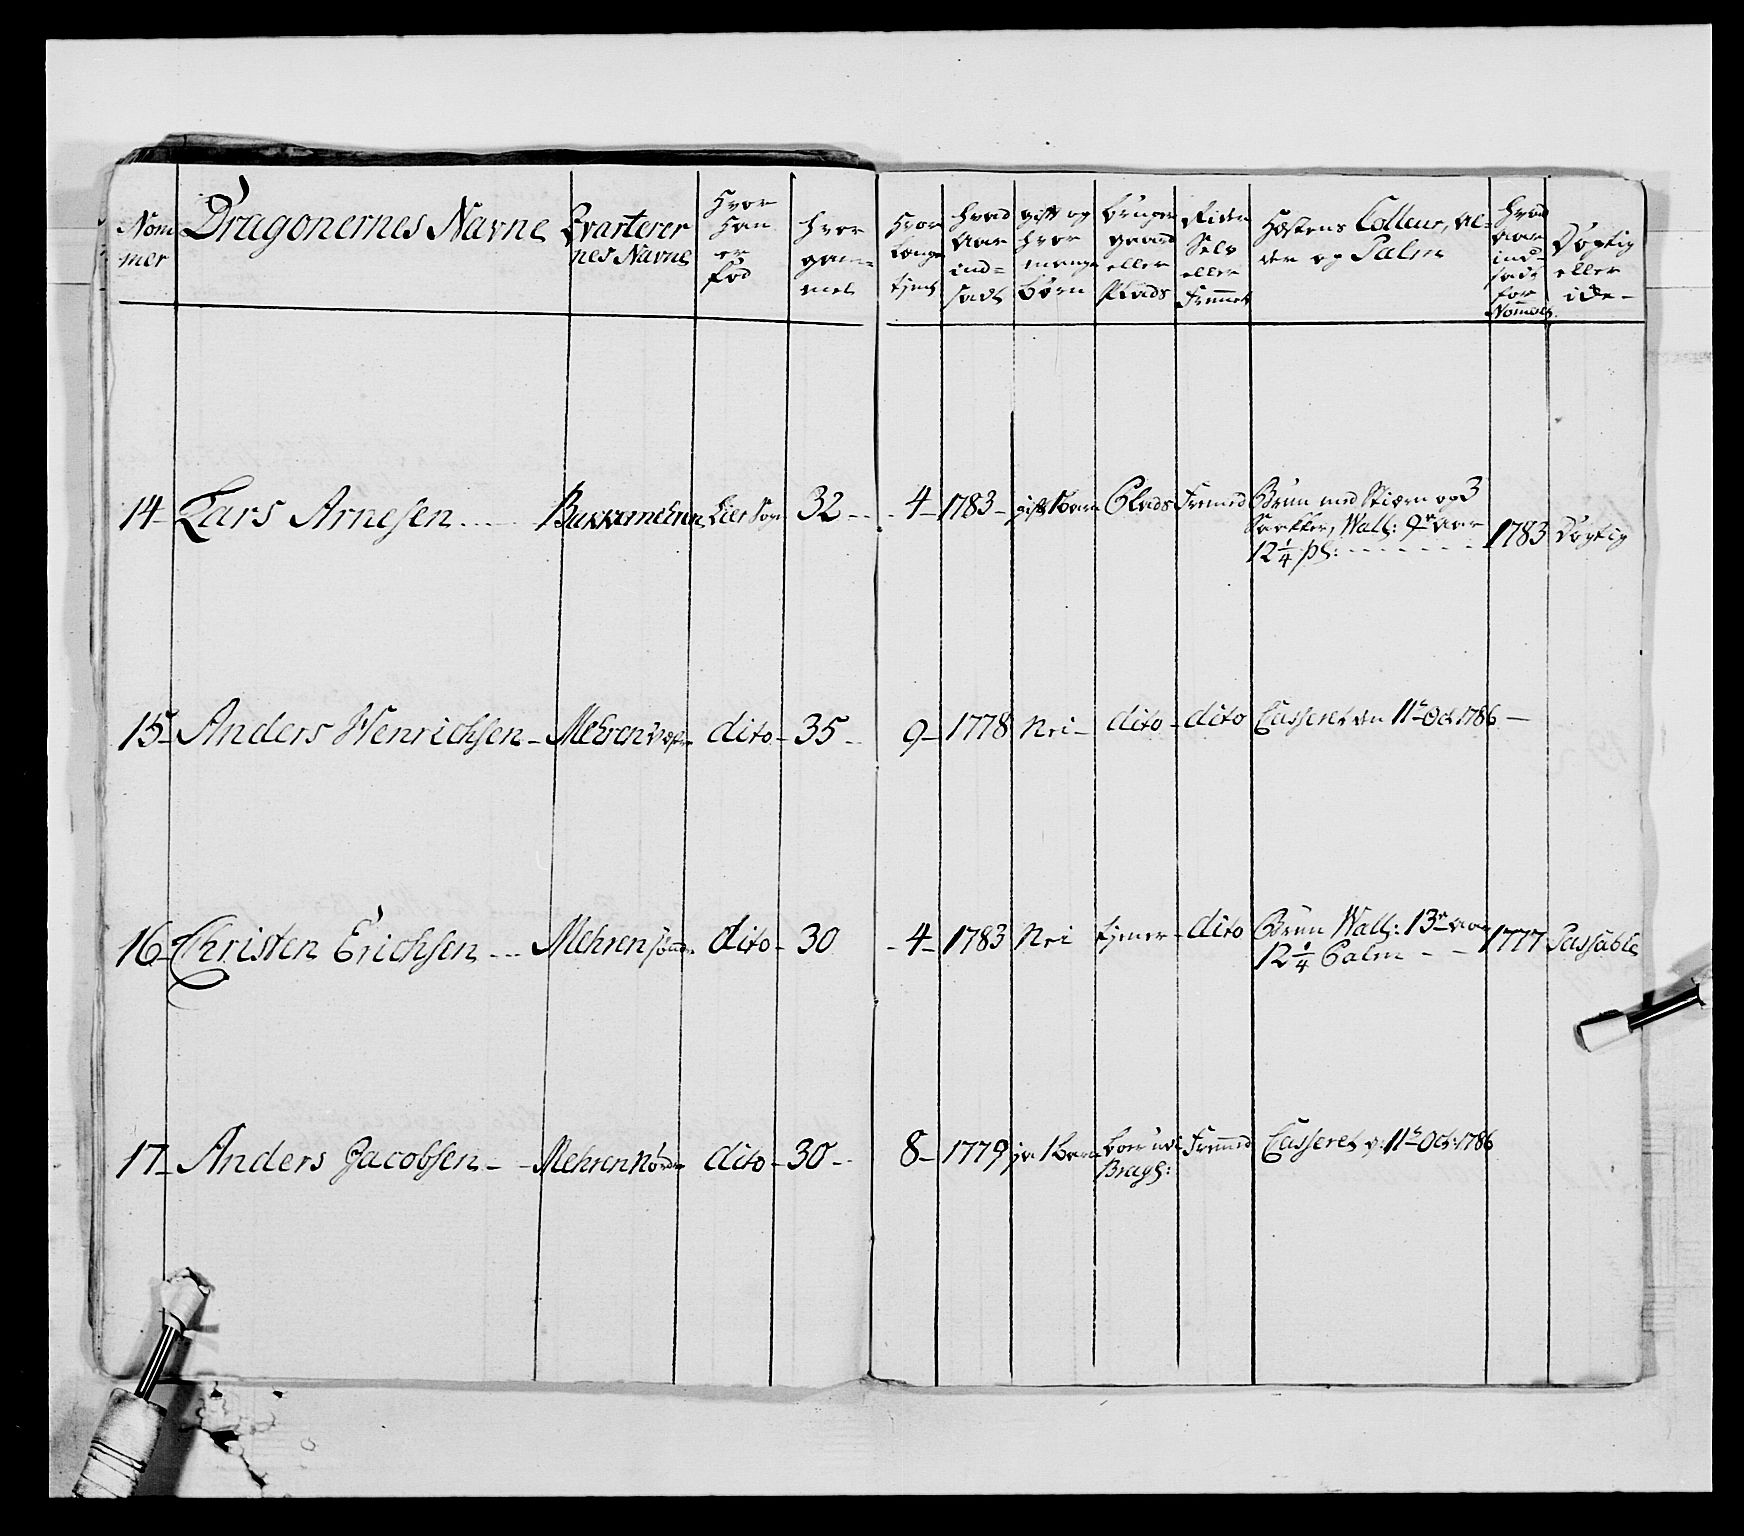 Nom
mer
Dragonernes Navne
Qvarterer
nes Navne
Hvor
Han
er
fød
hvor
gam=
mel
Hvor
længe
tjent
hvad
Aar
ind=
sadt
gift og
hvor
mange
børn
bruger
gaard
eller
Plads
Rider
Selv
eller
Fremet
Hæstens Colleur, Al=
der og Palm
hvad
Aar
ind=
sadt
for
Nomeret
Dygtig
eller
ide-
14- Lars Arnesen ... Lier Sogn 32 - 4- 1783- gift 1 barn Plads Fremed
Brun med Stiærn og 3
Wall: 9 Aar
12¼ pl: - - - - 1783 Dygtig
15- Anders Henrichsen - Mehren dito - 35 - 9- 1778 Nei - dito - dito Casseret den 11te Oct 1786 -
16- Christen Erichsen - - - Mehren dito - 30 - 4- 1783 Nei tjener - dito
Brun Wall: 13 Aar
12¼ Palm - - 1777 Passable
17- Anders Jacobsen - - Mehren Nordre dito - 30 - 8- 1779 ja 1 barn Fremed Casseret d: 11te Oct: 1786
Brags: